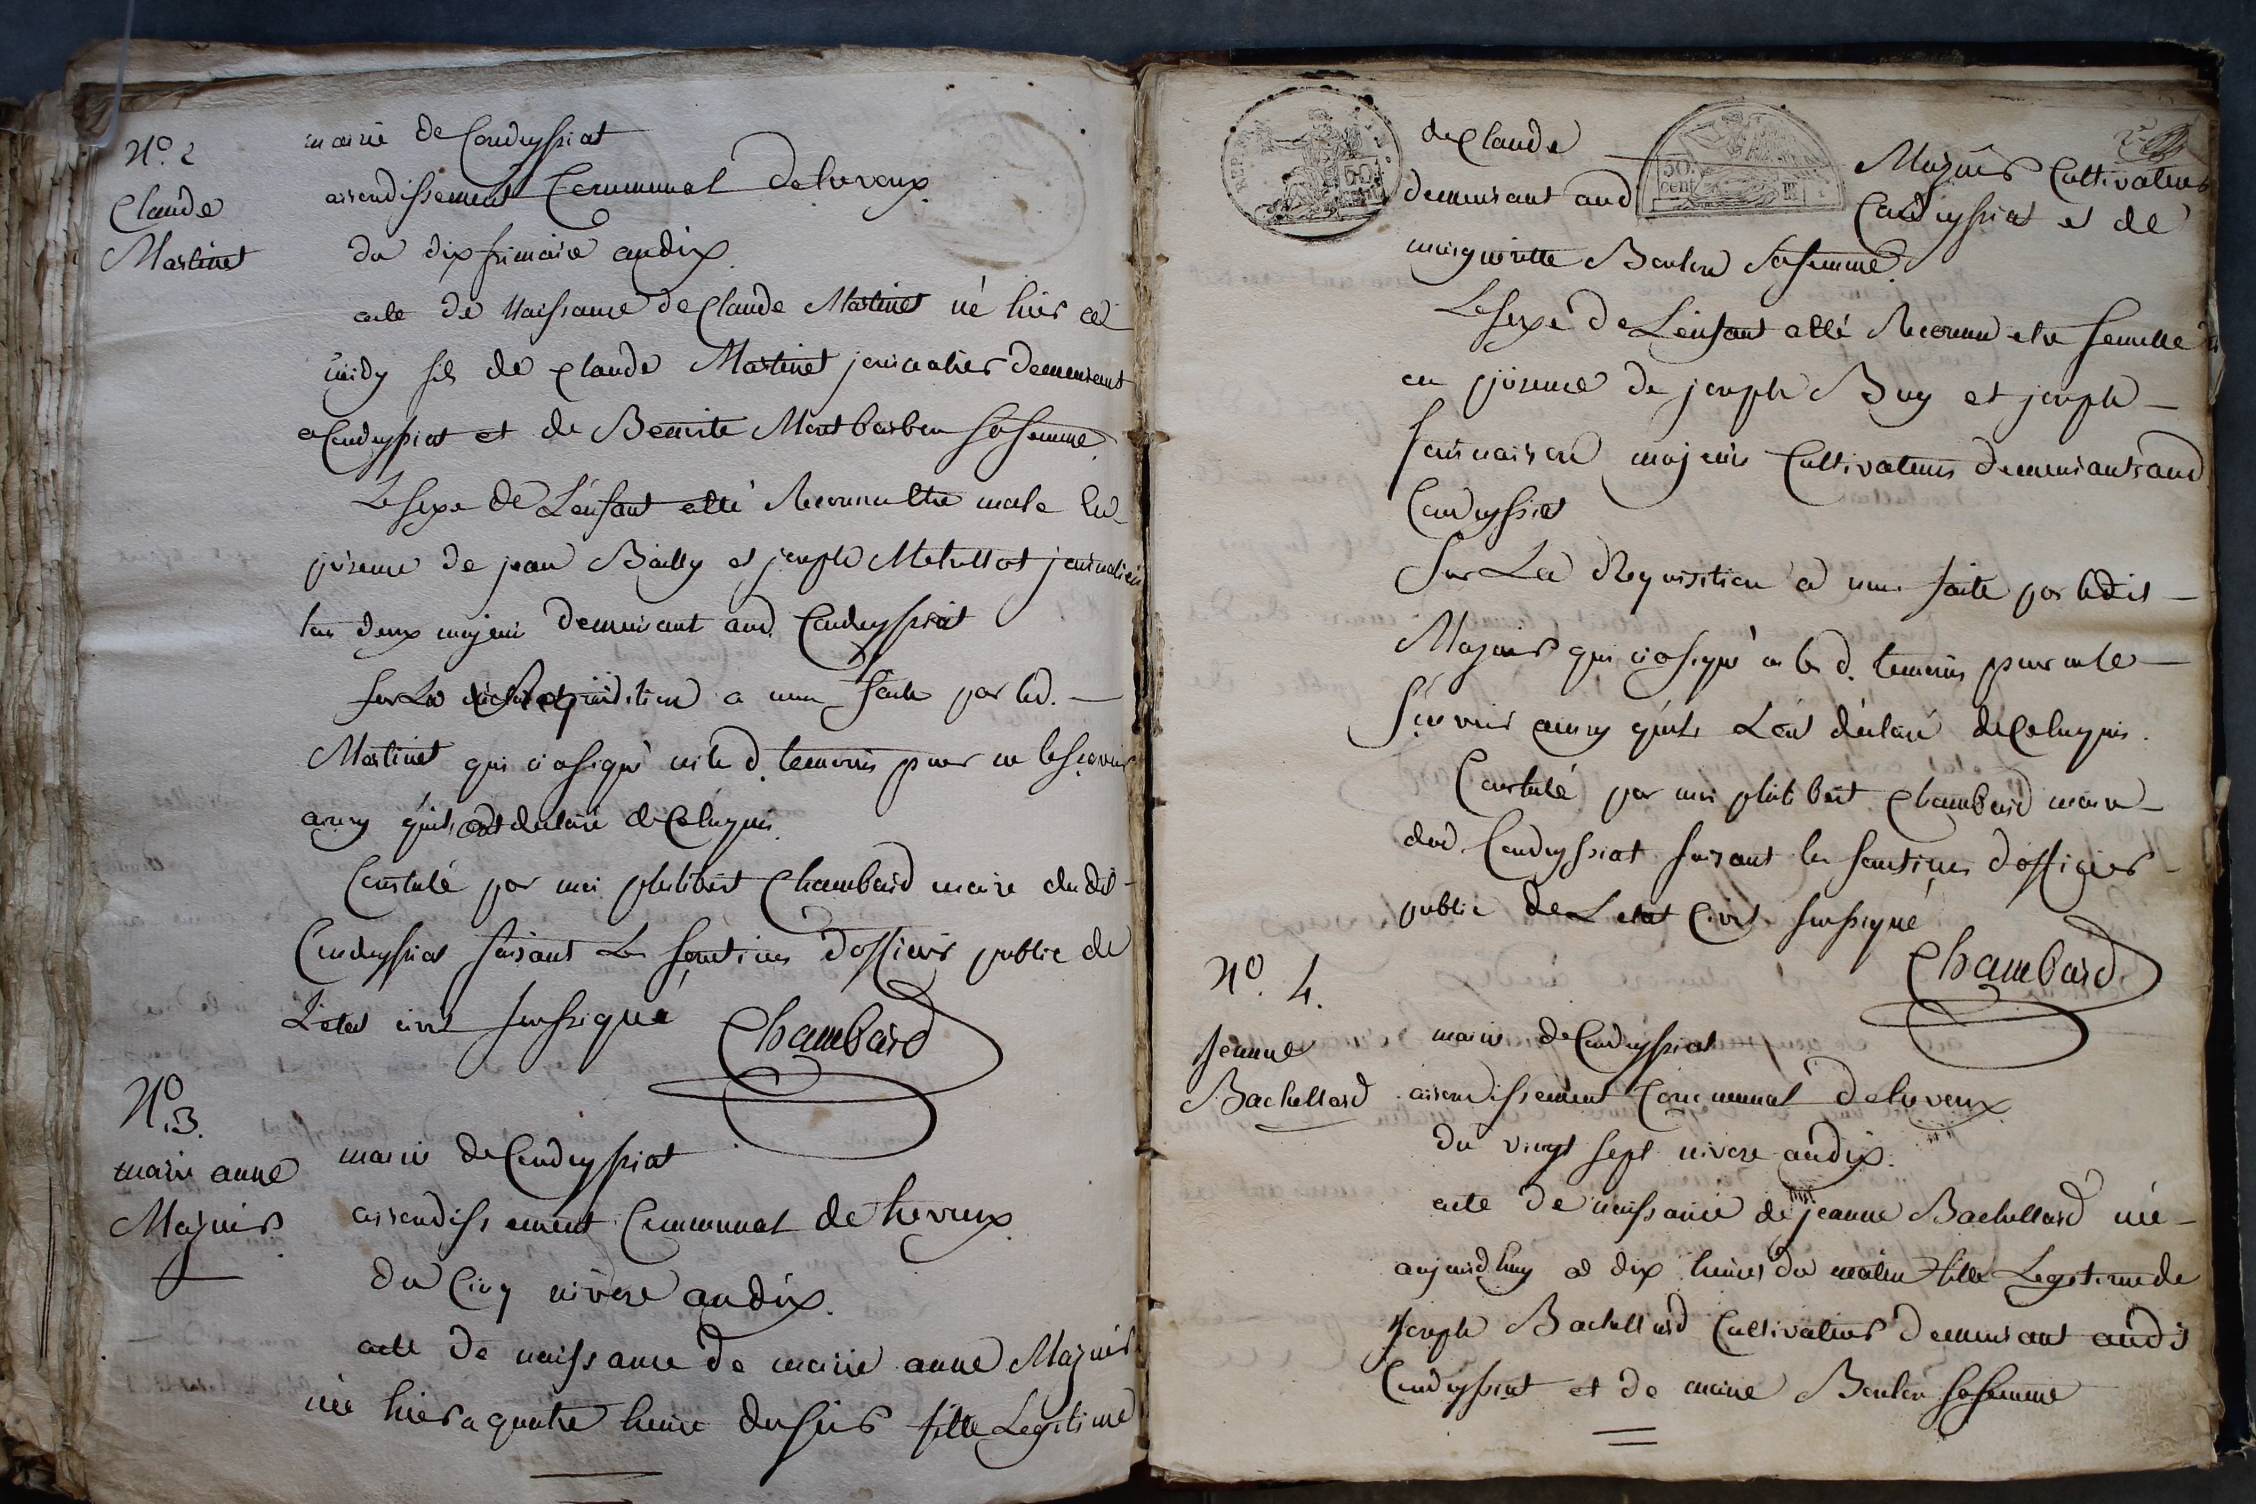 N°. 2
Claude
Martinet
mairie de Condeyssiat
arrondissement Communal de trevoux.
du dix frimaire an dix.
acte de Naissance de Claude Martinet né hier a
midy fils de Claude Martinet journalier demeurant
a Condeyssiat et de Benoite Montbarbon sa femme.
Le sexe de L'enfant a été Reconnu etre male En
présence de jean Bailly et joseph journaliers
tous deux majeurs demeurant aud. Condeyssiat
sur La Requisition a nous faite par led.
Martinet qui
quils ont declaré de Ce Requis.
Constaté par moi philibert Chambard maire dudit
Condeyssiat faisant Les fonctions d'officier public de
L'etat civil soussigné
Chambard
N°
3.
marie anne
Mazuir
mairie de Condeyssiat
arrondissement Communal de trevoux.
du Cinq nivose an dix.
acte de naissance de marie anne Mazuir
née hier a quatre heure du soir fille Legitime
de Claude Mazuir Cultivateur
REP. FRA.
50.
cent
demeurant aud Condeyssiat et de
margueritte Boulon sa femme.
Le sexe de L'enfant a été Reconnu etre femelle
en présence de joseph Buy et joseph
majeurs Cultivateurs demeurants aud
Condeyssiat
Sur La Requisition a nous faite par ledit
Mazuir qui
quils L'ont déclaré de Ce Requis.
Constaté par moi philibert Chambard maire
dud. Condeyssiat faisant les fonctions d'officier
public de L'etat Civil soussigné
Chambard
N°. 4.
Jeanne
Bachellard
mairie de Condeyssiat
arrondissement Communal de trevoux
du vingt sept nivose an dix.
acte de naissance de jeanne Bachellard née
aujourd'huy a dix heures du matin fille Legitime de
Joseph Bachellard Cultivateur demeurant audit
Condeyssiat et de marie Boulon sa femme